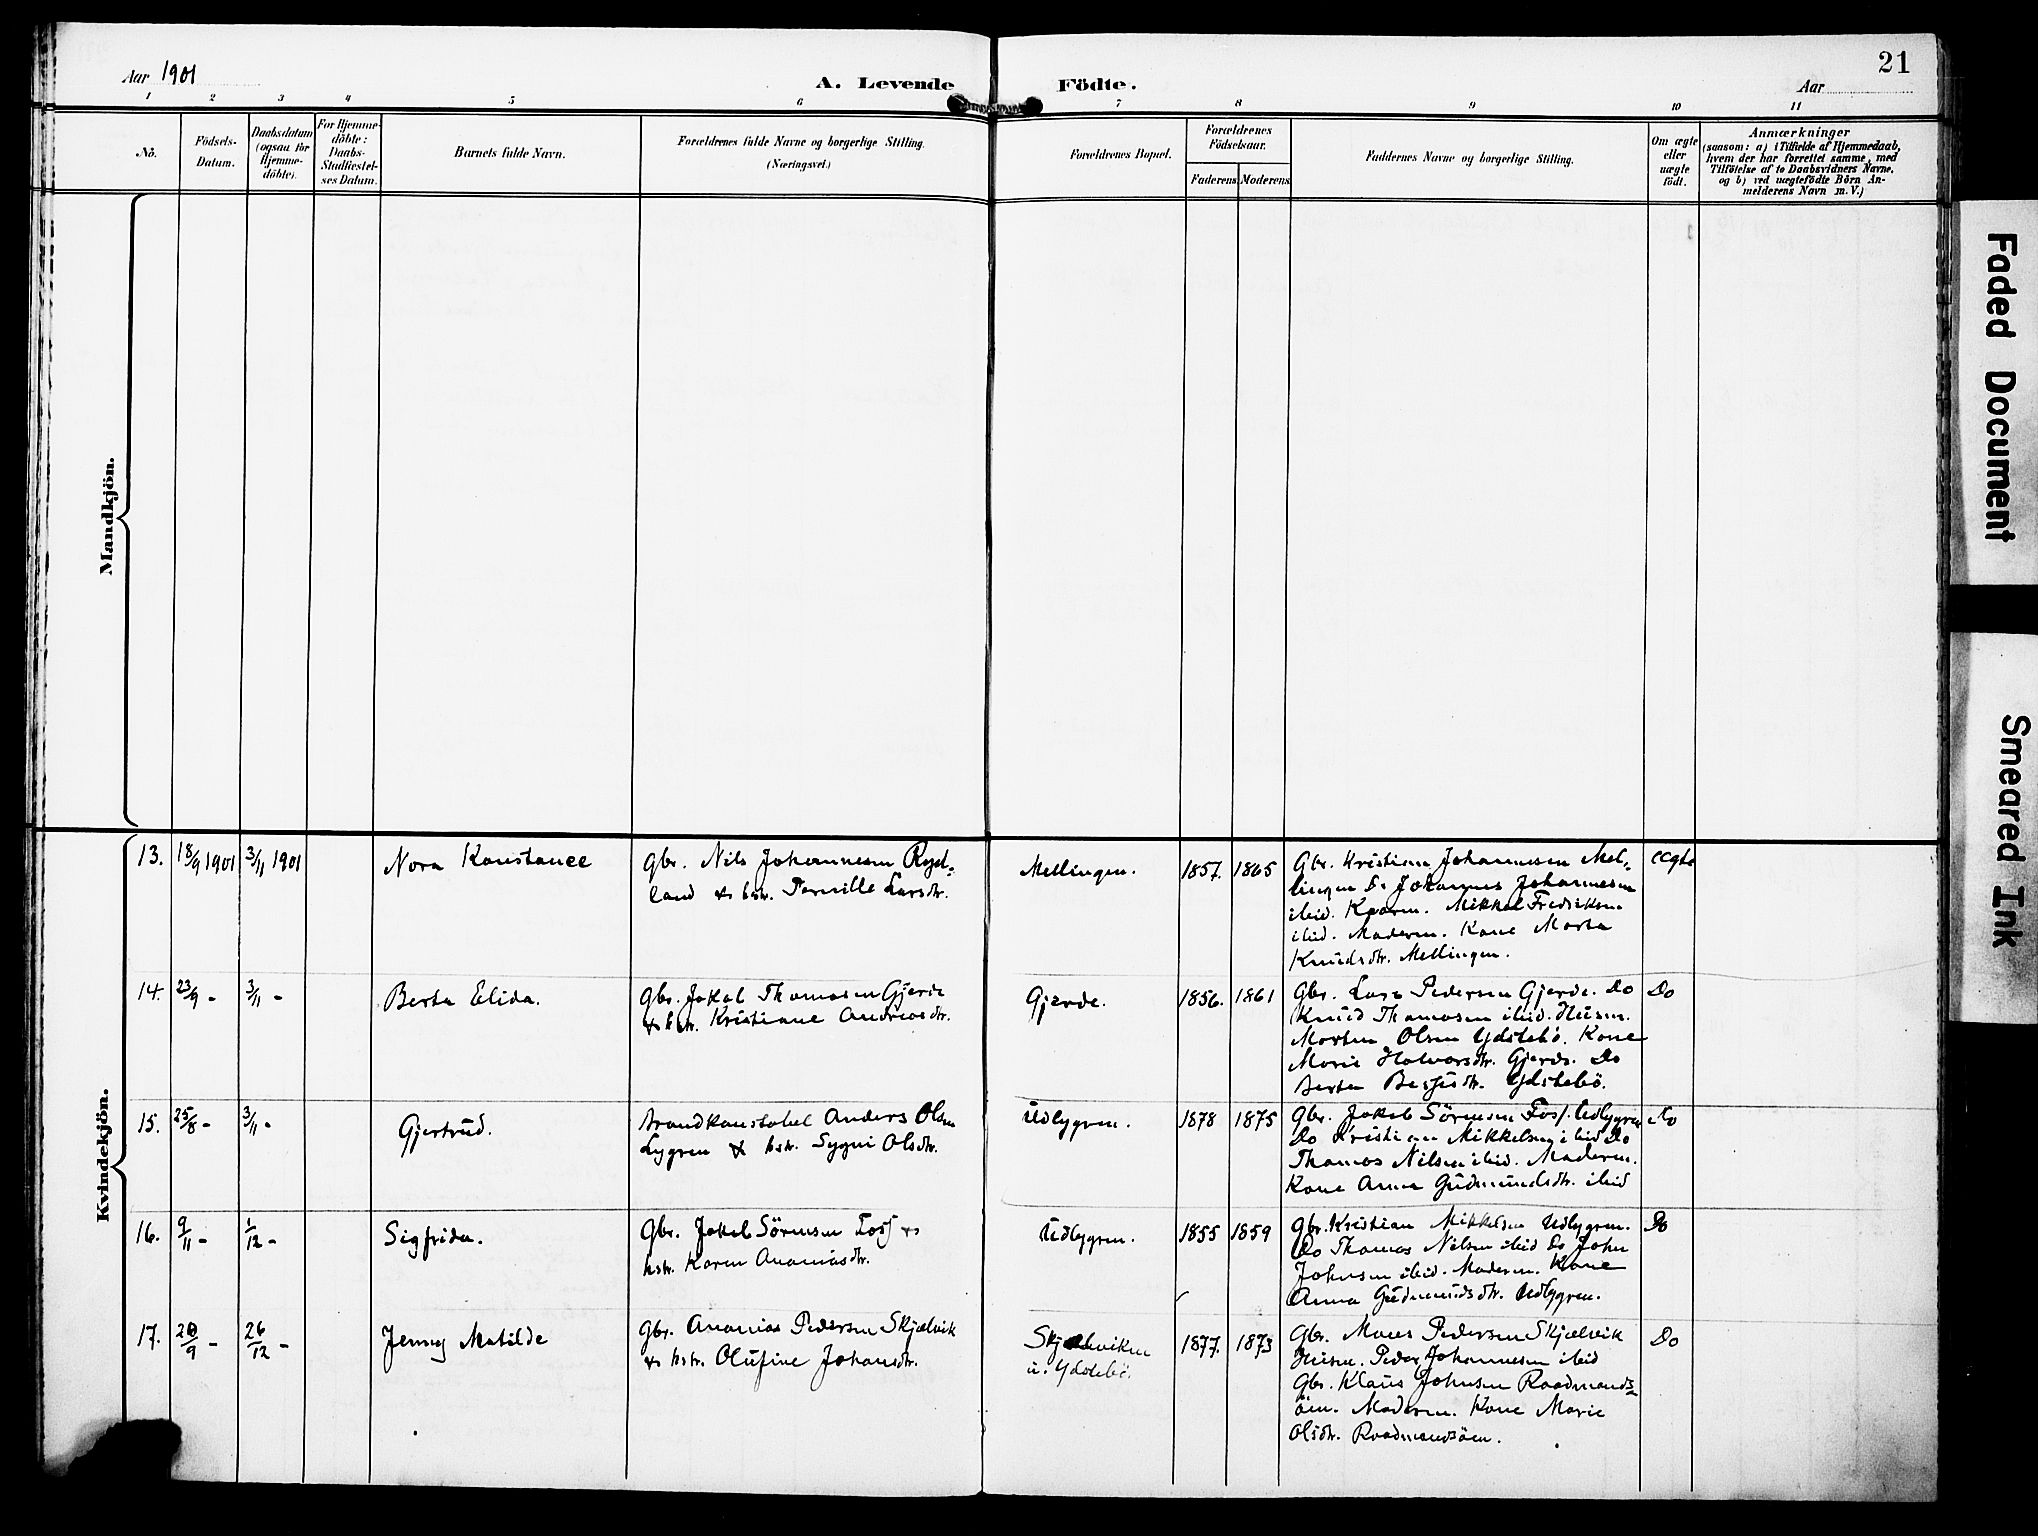 21
Aar 1901
A. Levende Födte.
Aar
1 2 3 4 5 6 7 8 9 10 11
Nö.
Födsels-
Datum.
Daabsdatum
(ogsaa for
Hjemme-
döbte).
For Hjemme-
döbte:
Daabs-
Stadfæstel-
ses Datum.
Barnets fulde Navn.
Forældrenes fulde Navne og borgerlige Stilling.
(Næringsvei.)
Forældrenes Bopæl.
Forældrenes
Födselsaar.
Faderens. Moderens.
Faddernes Navne og borgerlige Stilling.
Om ægte
eller
uægte
födt.
Anmærkninger
(saasom: a) i Tilfælde af Hjemmedaab,
hvem der har forrettet samme, med
Tilföielse af to Daabsvidners Navne,
og b) ved uægtefödte Börn An-
melderens Navn m. V.)
Mandkjön.
Kvindekjön.
13. 18/9 1901 3/11 1901
Nora Konstance
Gbr. Nils Johannesen Rysl-
land & hstr. Pernille Larsdtr.
Mellingen.
1857. 1865
Gbr. Kristian Johannesen Mel-
lingen Do Johannes Johannesen
ibid. Kaarm. Mikkel Fredriksen
ibid. Maderm. Kone Marta
Knudsdtr. Mellingen.
ægte
14. 23/9 - 3/11 -
Berta Elida.
Gbr. Jakob Thomasen Gjerde
& hstr. Kristiane Andreasdtr.
Gjerde.
1856. 1861
Gbr. Lars Pedersen Gjerde. Do
Knud Thomasen ibid. Husm.
Morten Olsen Ydstebö. Kone
Marie Halvorsdtr. Gjerde. Do
Berta Ydstebö.
Do
15. 25/8 - 3/11 -
Gjertrud.
Brandkonstabel Anders Olsen
Lygren & hstr. Sygni Olsdtr.
Udlygren.
1878 1875
Gbr. Jakob Sörensen Foss. Udlygren
Do Kristian Mikkelsen ibid Do
Thomas Nilsen ibid. Maderm.
Kone Anna Gudmundsdtr. ibid
Do
16. 9/11 - 1/12 -
Sigfrida.
Gbr. Jakob Sörensen Foss &
hstr. Karen Ananiasdtr.
Udlygren.
1855 1859
Gbr. Kristian Mikkelsen Udlygren.
Do Thomas Nilsen ibid Do John
Johnsen ibid. Maderm. Kone
Anna Gudmundsdtr. Udlygren.
Do
17. 20/9 - 26/12 -
Jenny Matilde
Gbr. Ananias Pedersen Skjælvik
& hstr. Olufine Johansdtr.
Skjælviken
u. Ydstebö.
1877. 1873
Gbr. Mons Pedersen Skjælvik
Husm. Peder Johannesen ibid
Gbr. Klaus Johnsen Raadmands-
öen. Maderm. Kone Marie
Olsdtr. Raadmandsöen.
Do
Faded Document
Smeared Ink